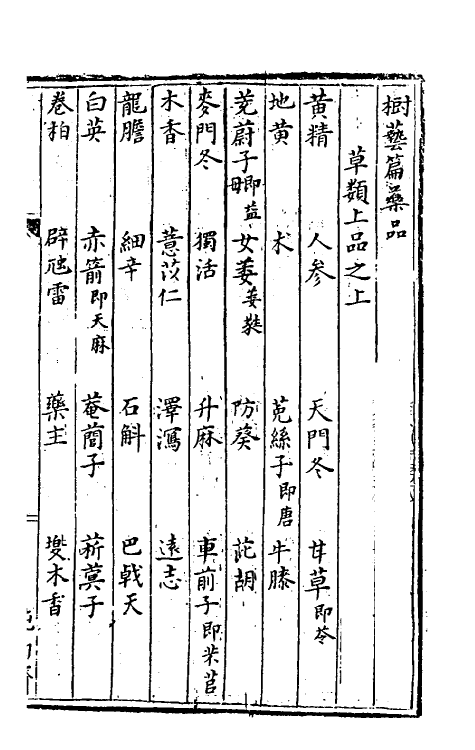 樹藝篇藥品
草類上品之上
黃精 人參 天門冬 甘草即苓
地黃 朮 菟絲子即唐 牛膝
茺蔚子即益母 女萎萎蕤 防葵 茈胡
麥門冬 獨活 升麻 車前子即芣苢
木香 薏苡仁 澤瀉 遠志
龍膽 細辛 石斛 巴戟天
白英 赤箭即天麻 菴䕡子 菥蓂子
卷柏 辟虺雷 藥王 㸑木香